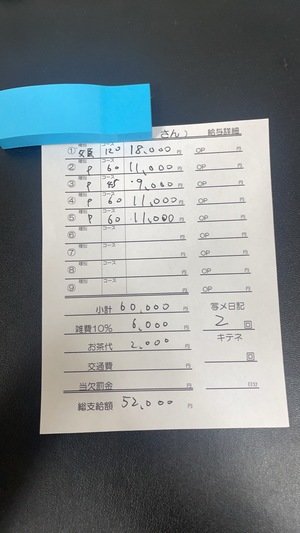 さん） 給与詳細
① 種別 コース 120 18,000 円 OP 円
② 種別 P コース 60 11,000 円 OP 円
③ 種別 P コース 45 9,000 円 OP 円
④ 種別 P コース 60 11,000 円 OP 円
⑤ 種別 P コース 60 11,000 円 OP 円
⑥ 種別 コース 円 OP 円
⑦ 種別 コース 円 OP 円
⑧ 種別 コース 円 OP 円
⑨ 種別 コース 円 OP 円
小計 60,000 円 写メ日記
雑費10% 6,000 円 2 回
お茶代 2,000 円 キテネ
交通費 円 回
当欠罰金 円 日分
総支給額 52,000 円